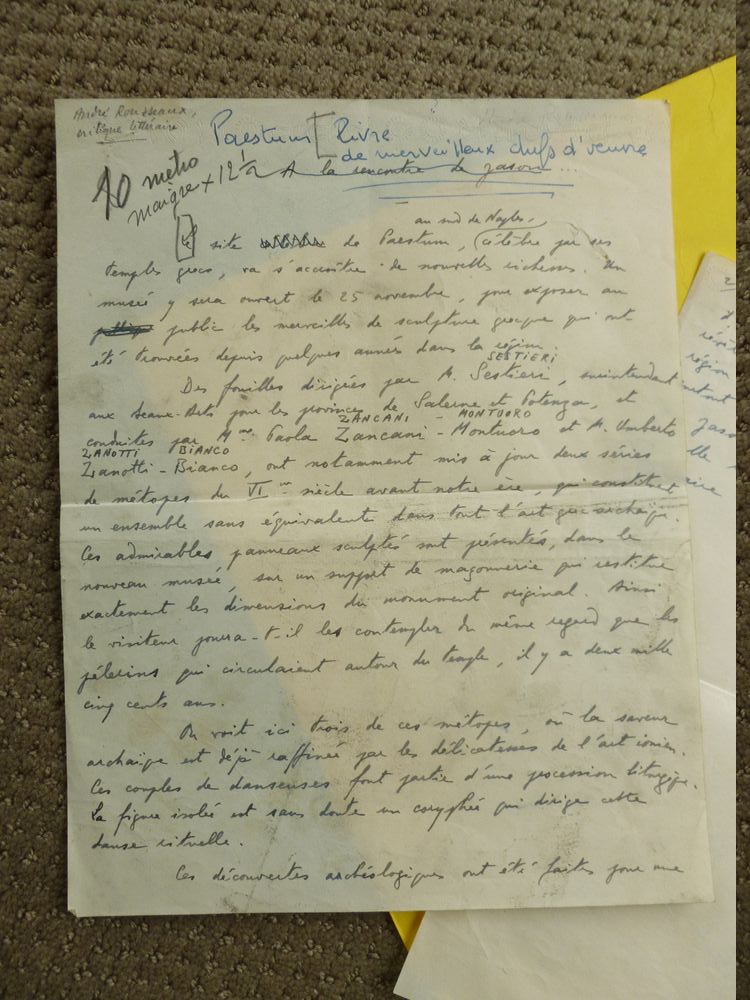 André Rousseaux,
critique littéraire
Paestum [ Rivre
de merveilleux chefs d'œuvre
10 métro
maigre x 12
A la rencontre de Jason...
au sud de Naples,
[Le] site de Paestum, célèbre par ses
temples grecs, va s'accroître de nouvelles richesses. Un
musée y sera ouvert le 25 novembre, pour exposer au
public les merveilles de sculpture grecque qui ont
été trouvées depuis quelques années dans la région.
SESTIERI
Des fouilles dirigées par M. Sestieri, surintendant
aux Beaux-Arts pour les provinces de Salerne et Potenza, et
ZANCANI MONTUORO
conduites par Mme Paola Zancani-Montuoro et M. Umberto
ZANOTTI BIANCO
Zanotti-Bianco, ont notamment mis à jour deux séries
de métopes du VIme siècle avant notre ère, qui constituent
un ensemble sans équivalent dans tout l'art grec archaïque.
Ces admirables panneaux sculptés sont présentés, dans le
nouveau musée, sur un support de maçonnerie qui restitue
exactement les dimensions du monument original. Ainsi
le visiteur pourra-t-il les contempler du même regard que les
pèlerins qui circulaient autour du temple, il y a deux mille
cinq cents ans.
On voit ici trois de ces métopes, où la saveur
archaïque est déjà raffinée par les délicatesses de l'art ionien.
Ces couples de danseuses font partie d'une procession liturgique.
La figure isolée est sans doute un coryphée qui dirige cette
danse rituelle.
Ces découvertes archéologiques ont été faites pour une
région
Jason